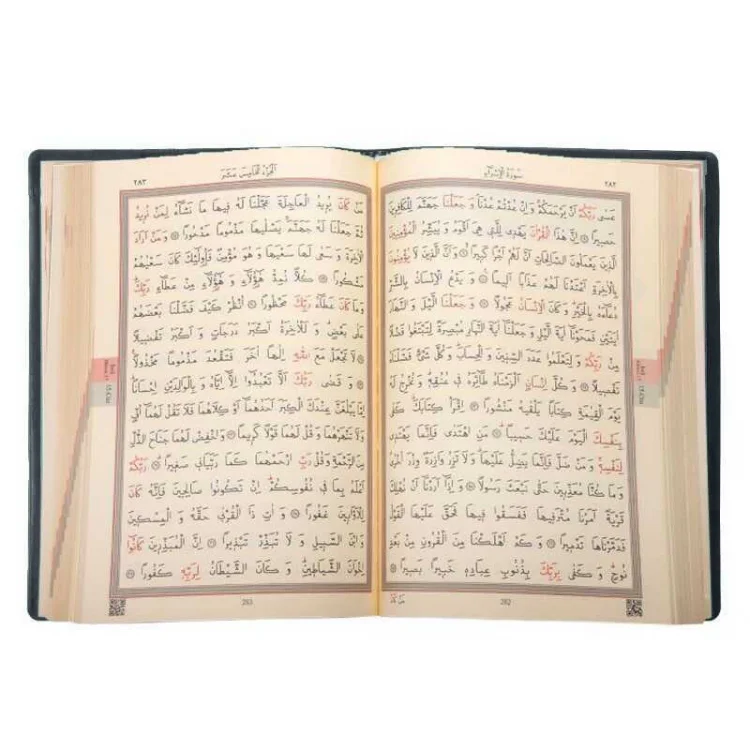 سورة الإسراء
٢٨٢
عَسٰى رَبُّكُمْ اَنْ يَرْحَمَكُمْ وَاِنْ عُدْتُمْ عُدْنَا وَ جَعَلْنَا جَهَنَّمَ لِلْكَافِرِينَ
حَصِيرًا ﴿٨﴾ اِنَّ هٰذَا الْقُرْاٰنَ يَهْدِى لِلَّتِى هِىَ اَقْوَمُ وَ يُبَشِّرُ الْمُؤْمِنِينَ
الَّذِينَ يَعْمَلُونَ الصَّالِحَاتِ اَنَّ لَهُمْ اَجْرًا كَبِيرًا ﴿٩﴾ وَ اَنَّ الَّذِينَ لَا يُؤْمِنُونَ
بِالْاٰخِرَةِ اَعْتَدْنَا لَهُمْ عَذَابًا اَلِيمًا ﴿١٠﴾ وَ يَدْعُ الْاِنْسَانُ بِالشَّرِّ
دُعَاءَهُ بِالْخَيْرِ وَ كَانَ الْاِنْسَانُ عَجُولًا ﴿١١﴾ وَ جَعَلْنَا الَّيْلَ وَ النَّهَارَ
اٰيَتَيْنِ فَمَحَوْنَا اٰيَةَ الَّيْلِ وَ جَعَلْنَا اٰيَةَ النَّهَارِ مُبْصِرَةً لِتَبْتَغُوا فَضْلًا
مِنْ رَبِّكُمْ وَ لِتَعْلَمُوا عَدَدَ السِّنِينَ وَ الْحِسَابَ وَ كُلَّ شَىْءٍ فَصَّلْنَاهُ
تَفْصِيلًا ﴿١٢﴾ وَ كُلَّ اِنْسَانٍ اَلْزَمْنَاهُ طَائِرَهُ فِى عُنُقِهِ وَ نُخْرِجُ لَهُ
يَوْمَ الْقِيٰمَةِ كِتَابًا يَلْقٰيهُ مَنْشُورًا ﴿١٣﴾ اِقْرَأْ كِتَابَكَ كَفٰى
بِنَفْسِكَ الْيَوْمَ عَلَيْكَ حَسِيبًا ﴿١٤﴾ مَنِ اهْتَدٰى فَاِنَّمَا يَهْتَدِى
لِنَفْسِهِ وَ مَنْ ضَلَّ فَاِنَّمَا يَضِلُّ عَلَيْهَا وَ لَا تَزِرُ وَازِرَةٌ وِزْرَ اُخْرٰى
وَ مَا كُنَّا مُعَذِّبِينَ حَتّٰى نَبْعَثَ رَسُولًا ﴿١٥﴾ وَ اِذَا اَرَدْنَا اَنْ نُهْلِكَ
قَرْيَةً اَمَرْنَا مُتْرَفِيهَا فَفَسَقُوا فِيهَا فَحَقَّ عَلَيْهَا الْقَوْلُ
فَدَمَّرْنَاهَا تَدْمِيرًا ﴿١٦﴾ وَ كَمْ اَهْلَكْنَا مِنَ الْقُرُونِ مِنْ بَعْدِ
نُوحٍ وَ كَفٰى بِرَبِّكَ بِذُنُوبِ عِبَادِهِ خَبِيرًا بَصِيرًا ﴿١٧﴾
مَنْ كَانَ
282
الجزء الخامس عشر
٢٨٣
مَنْ كَانَ يُرِيدُ الْعَاجِلَةَ عَجَّلْنَا لَهُ فِيهَا مَا نَشَاءُ لِمَنْ نُرِيدُ
ثُمَّ جَعَلْنَا لَهُ جَهَنَّمَ يَصْلٰيهَا مَذْمُومًا مَدْحُورًا ﴿١٨﴾ وَ مَنْ اَرَادَ
الْاٰخِرَةَ وَ سَعٰى لَهَا سَعْيَهَا وَ هُوَ مُؤْمِنٌ فَاُولٰئِكَ كَانَ سَعْيُهُمْ
مَشْكُورًا ﴿١٩﴾ كُلًّا نُمِدُّ هٰؤُلَاءِ وَ هٰؤُلَاءِ مِنْ عَطَاءِ رَبِّكَ
وَ مَا كَانَ عَطَاءُ رَبِّكَ مَحْظُورًا ﴿٢٠﴾ اُنْظُرْ كَيْفَ فَضَّلْنَا بَعْضَهُمْ
عَلٰى بَعْضٍ وَ لَلْاٰخِرَةُ اَكْبَرُ دَرَجَاتٍ وَ اَكْبَرُ تَفْضِيلًا
﴿٢١﴾ لَا تَجْعَلْ مَعَ اللّٰهِ اِلٰهًا اٰخَرَ فَتَقْعُدَ مَذْمُومًا مَخْذُولًا
﴿٢٢﴾ وَ قَضٰى رَبُّكَ اَلَّا تَعْبُدُوا اِلَّا اِيَّاهُ وَ بِالْوَالِدَيْنِ اِحْسَانًا
اِمَّا يَبْلُغَنَّ عِنْدَكَ الْكِبَرَ اَحَدُهُمَا اَوْ كِلَاهُمَا فَلَا تَقُلْ لَهُمَا اُفٍّ
وَ لَا تَنْهَرْهُمَا وَ قُلْ لَهُمَا قَوْلًا كَرِيمًا ﴿٢٣﴾ وَ اخْفِضْ لَهُمَا جَنَاحَ الذُّلِّ
مِنَ الرَّحْمَةِ وَ قُلْ رَبِّ ارْحَمْهُمَا كَمَا رَبَّيَانِى صَغِيرًا ﴿٢٤﴾ رَبُّكُمْ
اَعْلَمُ بِمَا فِى نُفُوسِكُمْ اِنْ تَكُونُوا صَالِحِينَ فَاِنَّهُ كَانَ
لِلْاَوَّابِينَ غَفُورًا ﴿٢٥﴾ وَ اٰتِ ذَا الْقُرْبٰى حَقَّهُ وَ الْمِسْكِينَ
وَ ابْنَ السَّبِيلِ وَ لَا تُبَذِّرْ تَبْذِيرًا ﴿٢٦﴾ اِنَّ الْمُبَذِّرِينَ كَانُوا
اِخْوَانَ الشَّيَاطِينِ وَ كَانَ الشَّيْطَانُ لِرَبِّهِ كَفُورًا ﴿٢٧﴾
283